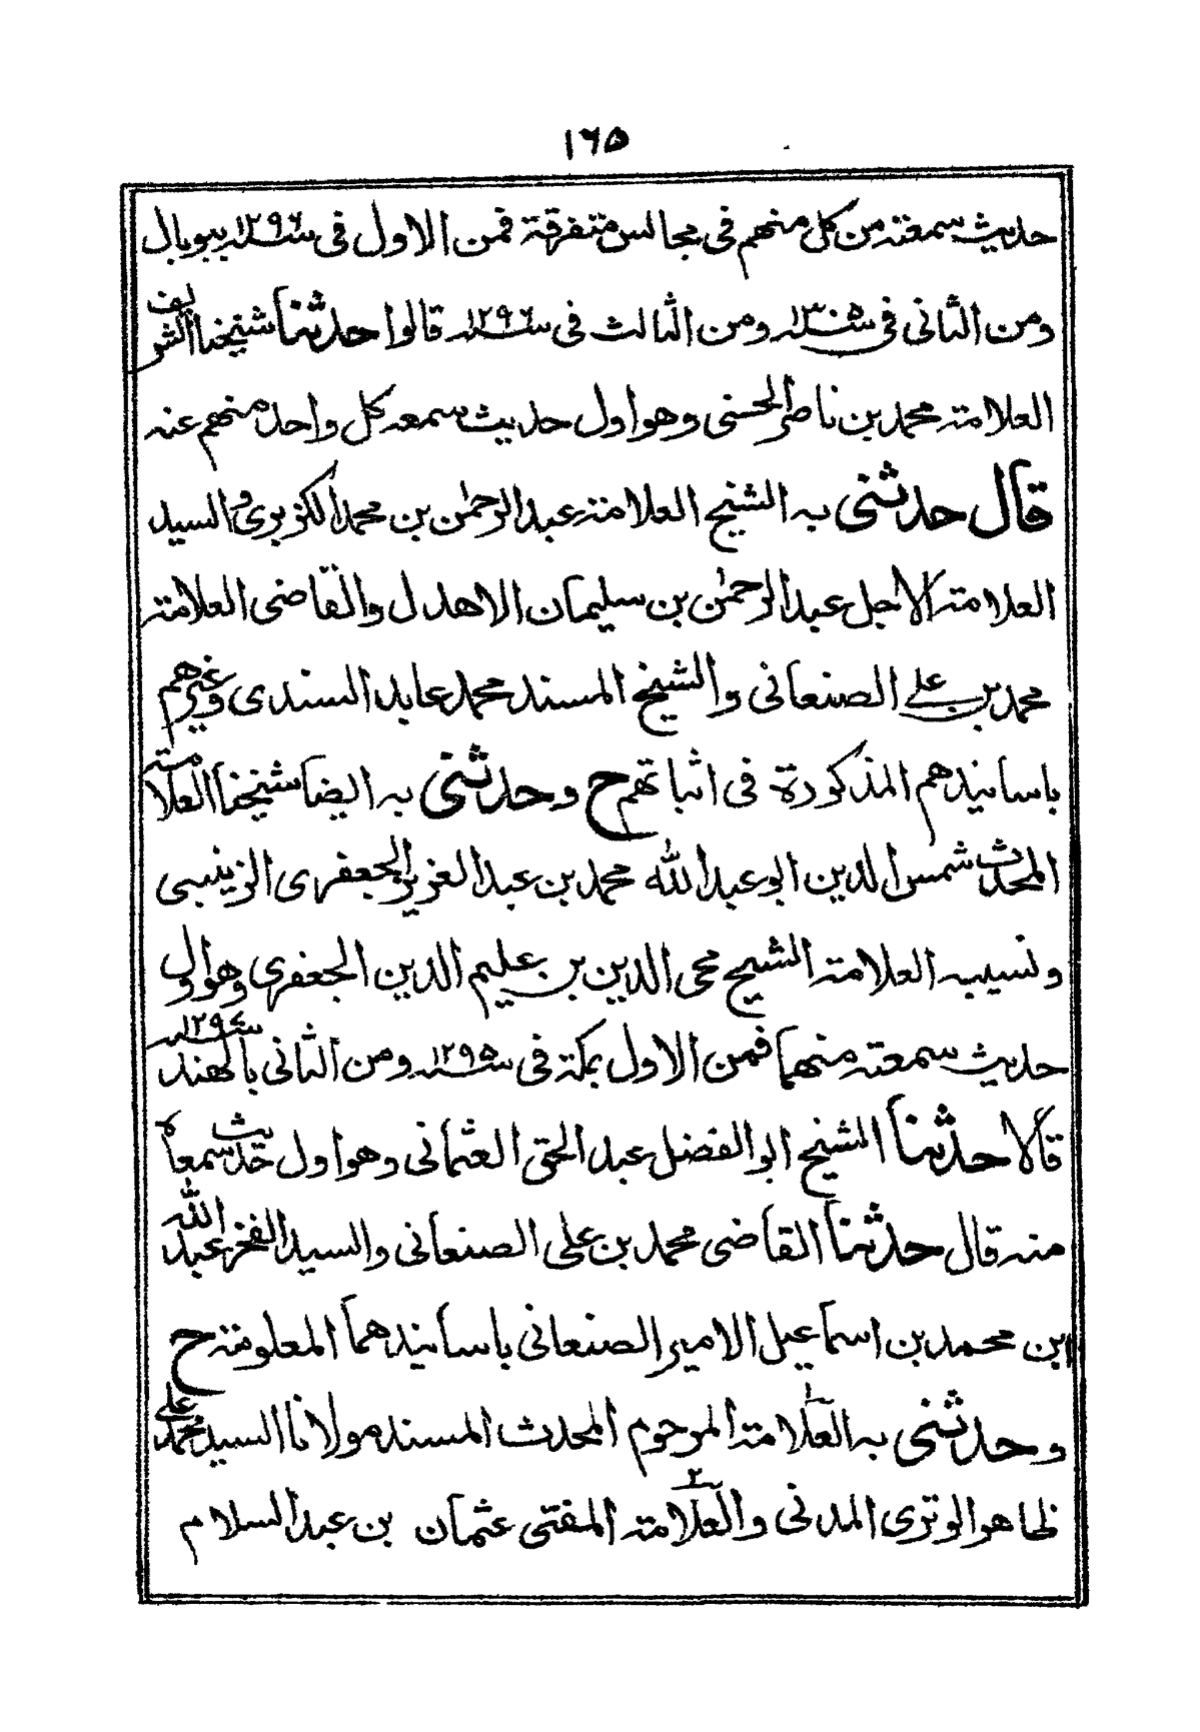 ١٦٥
حديث سمعته من كل منهم فى مجالس متفرقة فمن الاول فى سنه ١٢٩٦ ببوبال
ومن الثانى فى سنه ١٣٠٥ ومن الثالث فى سنه ١٢٩٦ قالوا حدثنا شيخنا الشريف
العلامة محمد بن ناصر الحسنى وهو اول حديث سمعه كل واحد منهم عنه
قال حدثنى به الشيخ العلامة عبد الرحمٰن بن محمد الكزبرى والسيد
العلامة الاجل عبد الرحمٰن بن سليمان الاهدل والقاضى العلامة
محمد بن على الصنعانى والشيخ المسند محمد عابد السندى وغيرهم
باسانيدهم المذكورة فى اثباتهم ح وحدثنى به ايضا شيخنا العلامة
المحدث شمس الدين ابو عبد الله محمد بن عبد العزيز الجعفرى الزينبى
ونسيبه العلامة الشيخ محى الدين بن عليم الدين الجعفرى وهو اول
حديث سمعته منهما فمن الاول بمكة فى سنه ١٢٩٥ ومن الثانى بالهند سنه ١٢٩٤
قالا حدثنا الشيخ ابو الفضل عبد الحق العثمانى وهو اول حديث سمعاه
منه قال حدثنا القاضى محمد بن على الصنعانى والسيد الفخر عبد الله
ابن محمد بن اسماعيل الامير الصنعانى باسانيدهما المعلومة ح
وحدثنى به العلامة المرحوم المحدث المسند مولانا السيد محمد على
ظاهر الوترى المدنى والعلامة المفتى عثمان بن عبد السلام